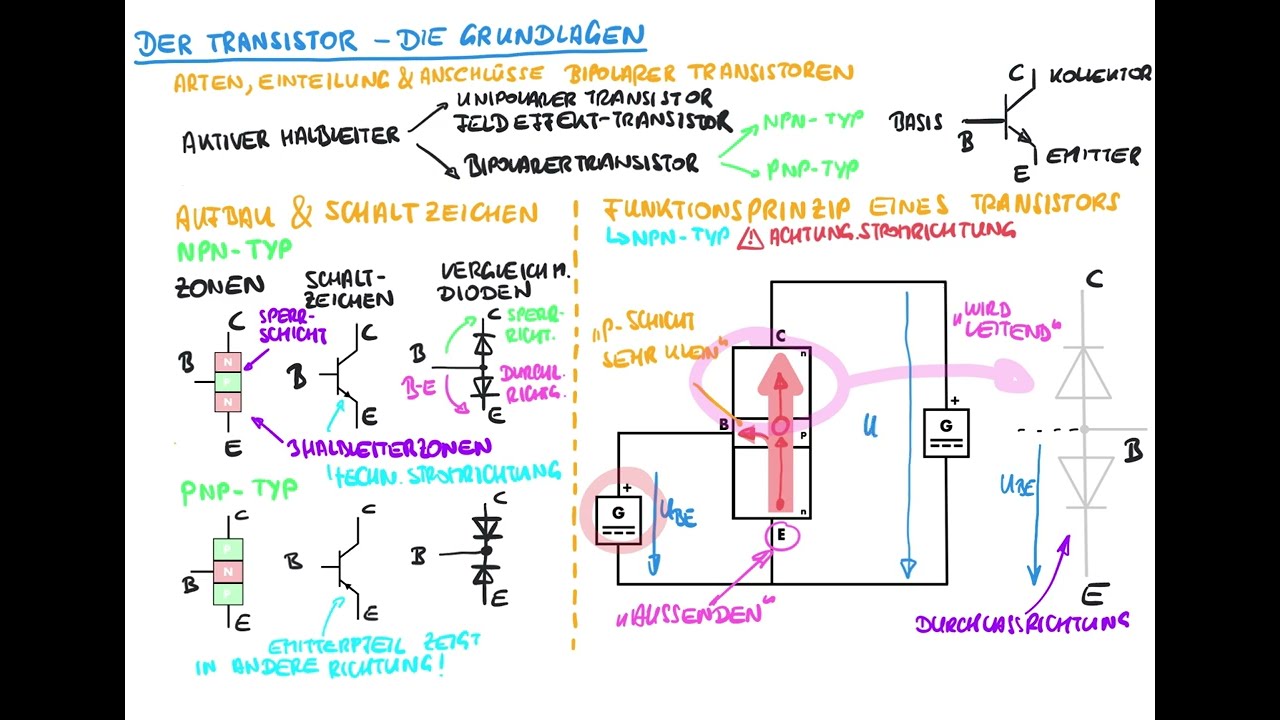 DER TRANSISTOR – DIE GRUNDLAGEN
ARTEN, EINTEILUNG & ANSCHLÜSSE BIPOLARER TRANSISTOREN
AKTIVER HALBLEITER
UNIPOLARER TRANSISTOR
FELDEFFEKT-TRANSISTOR
BIPOLARERTRANSISTOR
NPN-TYP
PNP-TYP
C KOLLEKTOR
BASIS
B
E EMITTER
AUFBAU & SCHALTZEICHEN
NPN-TYP
ZONEN
SCHALT-
ZEICHEN
VERGLEICH M.
DIODEN
C
SPERR-
SCHICHT
B
N
P
N
E
3 HALBLEITERZONEN
C
B
E
TECHN. STROMRICHTUNG
C
SPERR-
RICHT.
B
B-E
DURCHL.
RICHTG.
E
PNP-TYP
C
P
N
P
B
E
C
B
E
C
B
E
EMITTERPFEIL ZEIGT
IN ANDERE RICHTUNG!
FUNKTIONSPRINZIP EINES TRANSISTORS
NPN-TYP ! ACHTUNG. STROMRICHTUNG
„P-SCHICHT
SEHR KLEIN"
C
n
B
P
n
E
+
G
UBE
U
+
G
„AUSSENDEN"
„WIRD
LEITEND"
C
B
UBE
E
DURCHLASSRICHTUNG